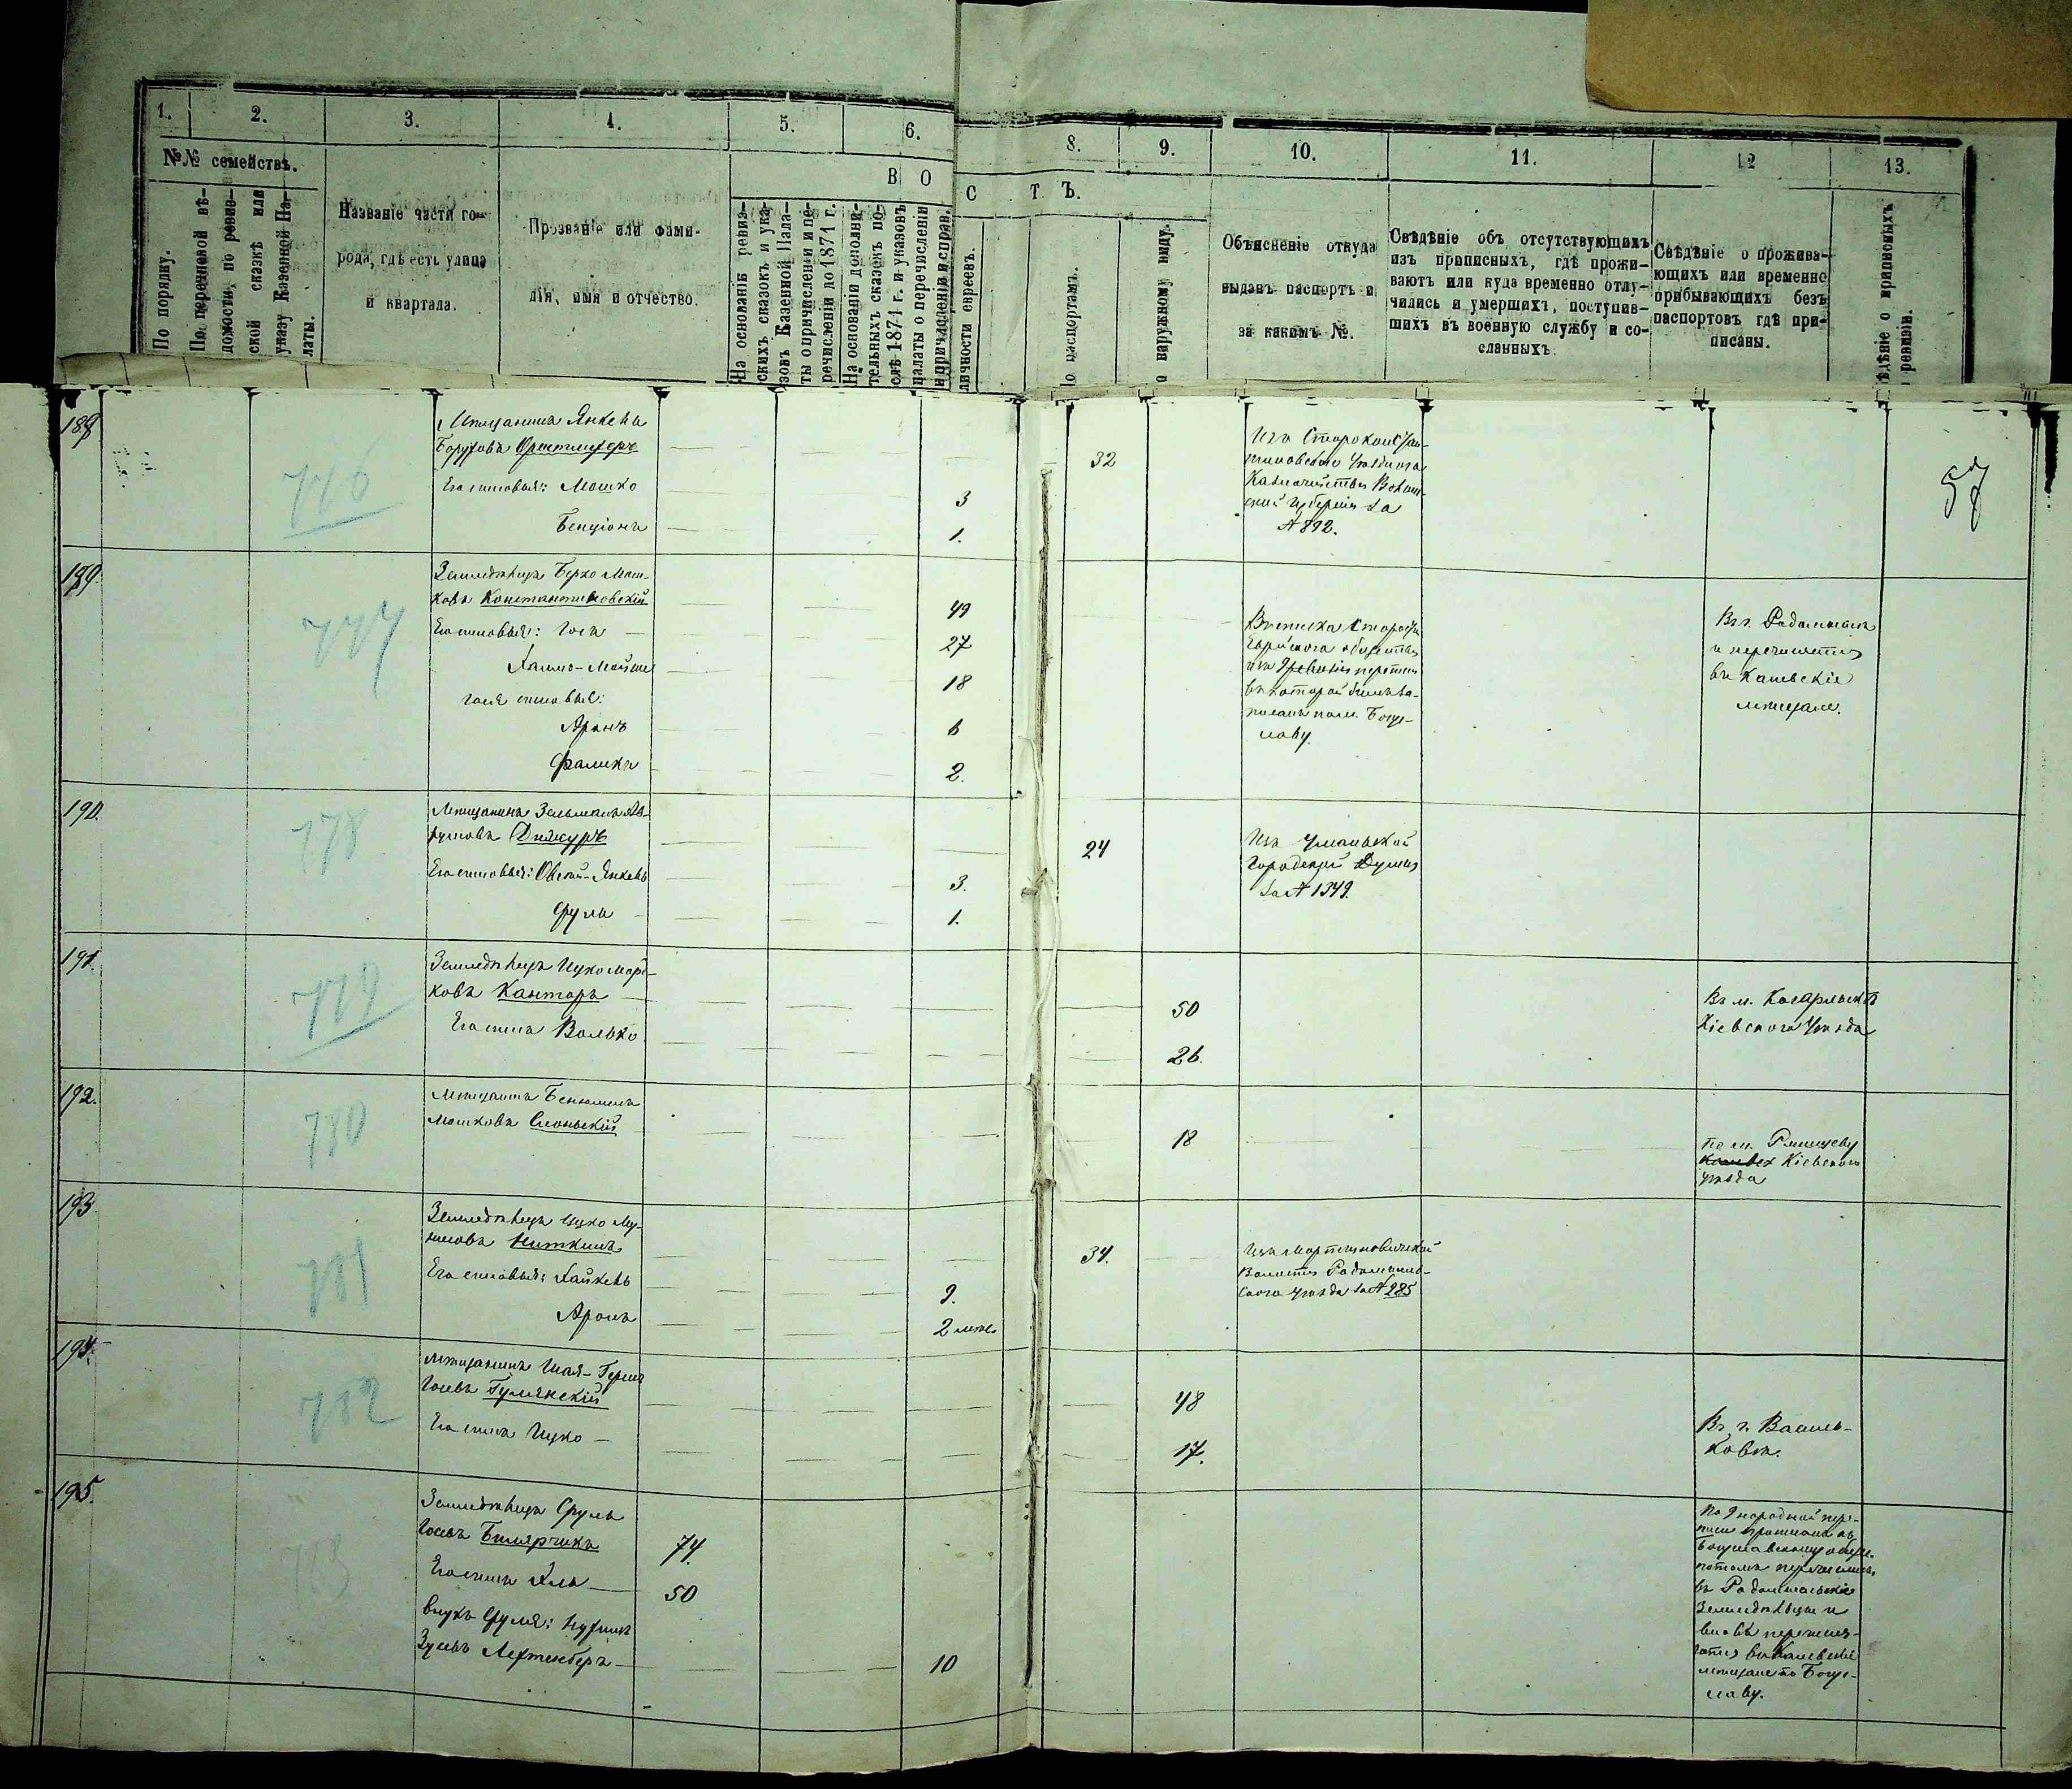 1.
2.
3.
4.
5.
6.
8.
9.
10.
11.
12
13.
№№ семействъ.
В О
С Т Ъ.
По порядку.
По перечневой вѣ-
домости, по ревиз-
ской сказкѣ или
указу Казенной Па-
латы.
Названіе части го-
рода, гдѣ есть улица
и квартала.
Прозваніе или фами-
лія, имя и отчество.
На основаніи ревиз-
скихъ сказокъ и ука-
зовъ Казенной Пала-
ты о причисленіи и пе-
речисленіи до 1874 г.
На основаніи дополни-
тельныхъ сказокъ по-
слѣ 1874 г. и указовъ
палаты о перечисленіи
и причисленіи и справ.
личности евреевъ.
по паспортамъ.
о наружному виду.
Объясненіе откуда
выданъ паспортъ и
за какимъ №.
Свѣдѣніе объ отсутствующихъ
изъ приписныхъ, гдѣ прожи-
ваютъ или куда временно отлу-
чились и умершихъ, поступив-
шихъ въ военную службу и со-
сланныхъ.
Свѣдѣніе о прожива-
ющихъ или временно
прибывающихъ безъ
паспортовъ гдѣ при-
писаны.
ѣдѣніе о приписныхъ
ревизіи.
188
776
Мѣщанинъ Янкель
Боруховъ
Его сыновья: Мошко
3
Бенціонъ
1.
32
Изъ Староконстан-
тиновскаго Уѣзднаго
Казначейства Волын-
ской Губерніи за
№ 892.
57
189
777
Земледѣлецъ Берко Мош-
ковъ Константиновскій
49
Его сыновья: Гось
27
Хаимъ-Мойше
18
Гося сыновья:
Аронъ
6
Фаликъ
2.
Выписка Старосты
Еврейскаго общества
изъ 9 ревизіи переписи
въ которой былъ за-
писанъ по м. Богу-
славу.
Въ г. Радомыслѣ
и перечисляется
въ Каневскіе
мѣщане.
190.
778
Мѣщанинъ Зельманъ Ав-
румовъ Дижуръ
Его сыновья: Овсей-Янкель
3.
Сруль
1.
24
Изъ Уманьской
Городской Думы
за № 1349.
191.
779
Земледѣлецъ Ицко Морд-
ковъ Канторъ
50
Его сынъ Волько
26.
Въ м. Кагарлыкѣ
Кіевскаго Уѣзда
192.
780
Мѣщанинъ Бенюминъ
Мошковъ
18
по м. Ржищеву
Кіевскаго
уѣзда
193.
781
Земледѣлецъ Ицко
Ниткинъ
Его сыновья: Хайкель
9.
Аронъ
2 мѣс.
34.
Изъ Мартыновичской
Волости Радомысль-
скаго уѣзда за № 285
194.
782
Мѣщанинъ Шая-Герш
Госевъ Гулянскій
48
Его сынъ Ицко
17.
Въ г. Василь-
ковѣ.
195.
783
Земледѣлецъ Сруль
Госевъ Билярчикъ
74.
Его сынъ Хиль
50
внукъ Сруля: Нухимъ
Зусевъ Лехтенберъ
10
По 9 народной пере-
писи приписанъ къ
Богуславскому общес.
потомъ перечислился
въ Радомысльскіе
Земледѣльцы и
вновь перечисля-
ется въ Каневскіе
мѣщане по Богу-
славу.